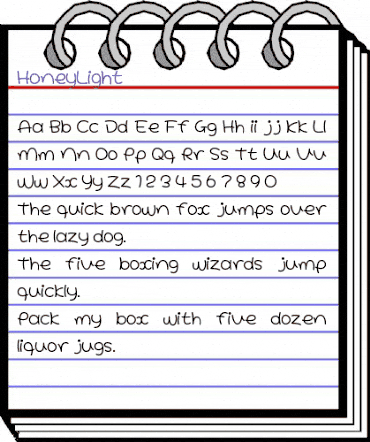 HoneyLight
Aa Bb Cc Dd Ee Ff Gg Hh Ii Jj Kk Ll
Mm Nn Oo Pp Qq Rr Ss Tt Uu Vv
Ww Xx Yy Zz 1 2 3 4 5 6 7 8 9 0
The quick brown fox jumps over
the lazy dog.
The five boxing wizards jump
quickly.
Pack my box with five dozen
liquor jugs.